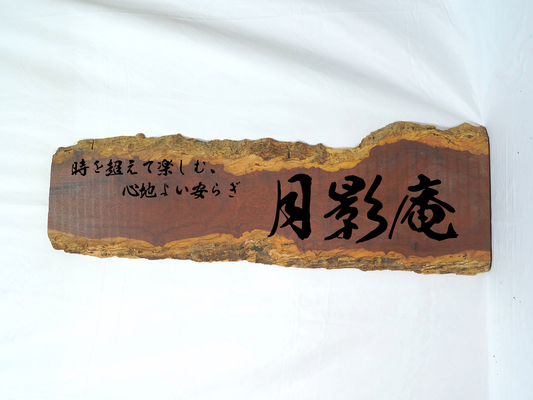 時を超えて楽しむ、
心地よい安らぎ
月影庵